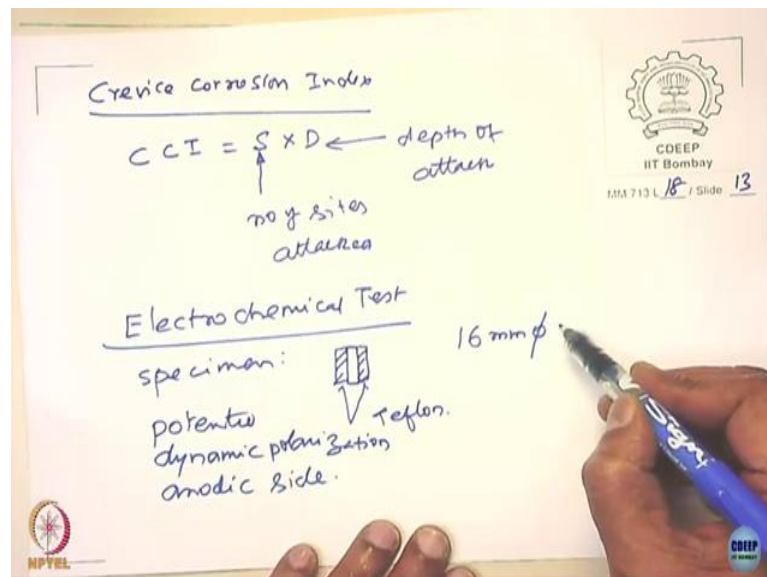 Crevice Corrosion Index
CCI = S × D ← depth of
attack
no of sites
attacked
Electrochemical Test
specimen:
Teflon.
potentio
dynamic polarization
anodic side.
16 mm φ
CDEEP
IIT Bombay
MM 713 L 18 / Slide 13
Sign
NPTEL
CDEEP
IIT BOMBAY